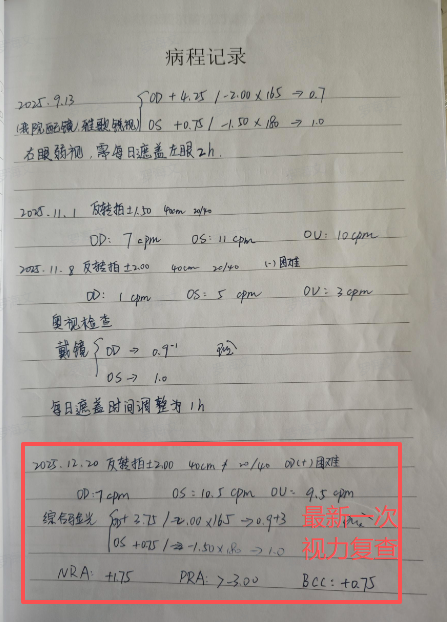 病程记录
2025.9.13 OD +4.25/-2.00×165→0.7
(我院配镜, 雅歌镜视) OS +0.75/-1.50×180→1.0
右眼弱视,需每日遮盖左眼2h.
2025.11.1 反转拍±1.50 40cm 20/40
OD: 7cpm OS: 11cpm OU: 10cpm
2025.11.8 反转拍±2.00 40cm 20/40 (-)困难
OD: 1cpm OS: 5cpm OU: 3cpm
奥视检查
戴镜 OD→0.9⁻¹
OS→1.0
每日遮盖时间调整为1h
2025.12.20 反转拍±2.00 40cm 20/40 OD(+)困难
OD: 7cpm OS: 10.5cpm OU: 9.5cpm
综合验光 OD+3.75/-2.00×165→0.9+3
OS +0.75/-1.50×180→1.0
最新一次
视力复查
NRA: +1.75 PRA: >-3.00 BCC: +0.75